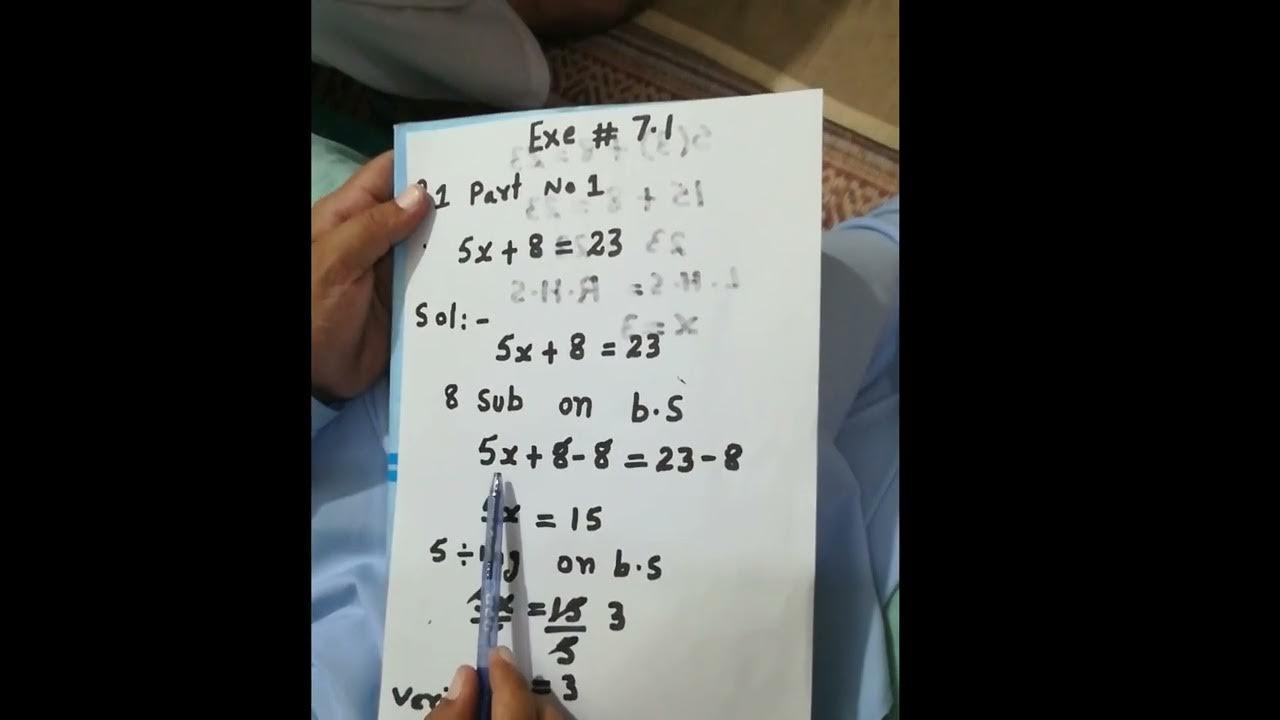 Exe # 7.1
1 Part No 1
5x + 8 = 23
Sol:-
5x + 8 = 23
8 Sub on b.s
5x + 8 - 8 = 23 - 8
x = 15
5 ÷ing on b.s
x = 15 3
5
= 3